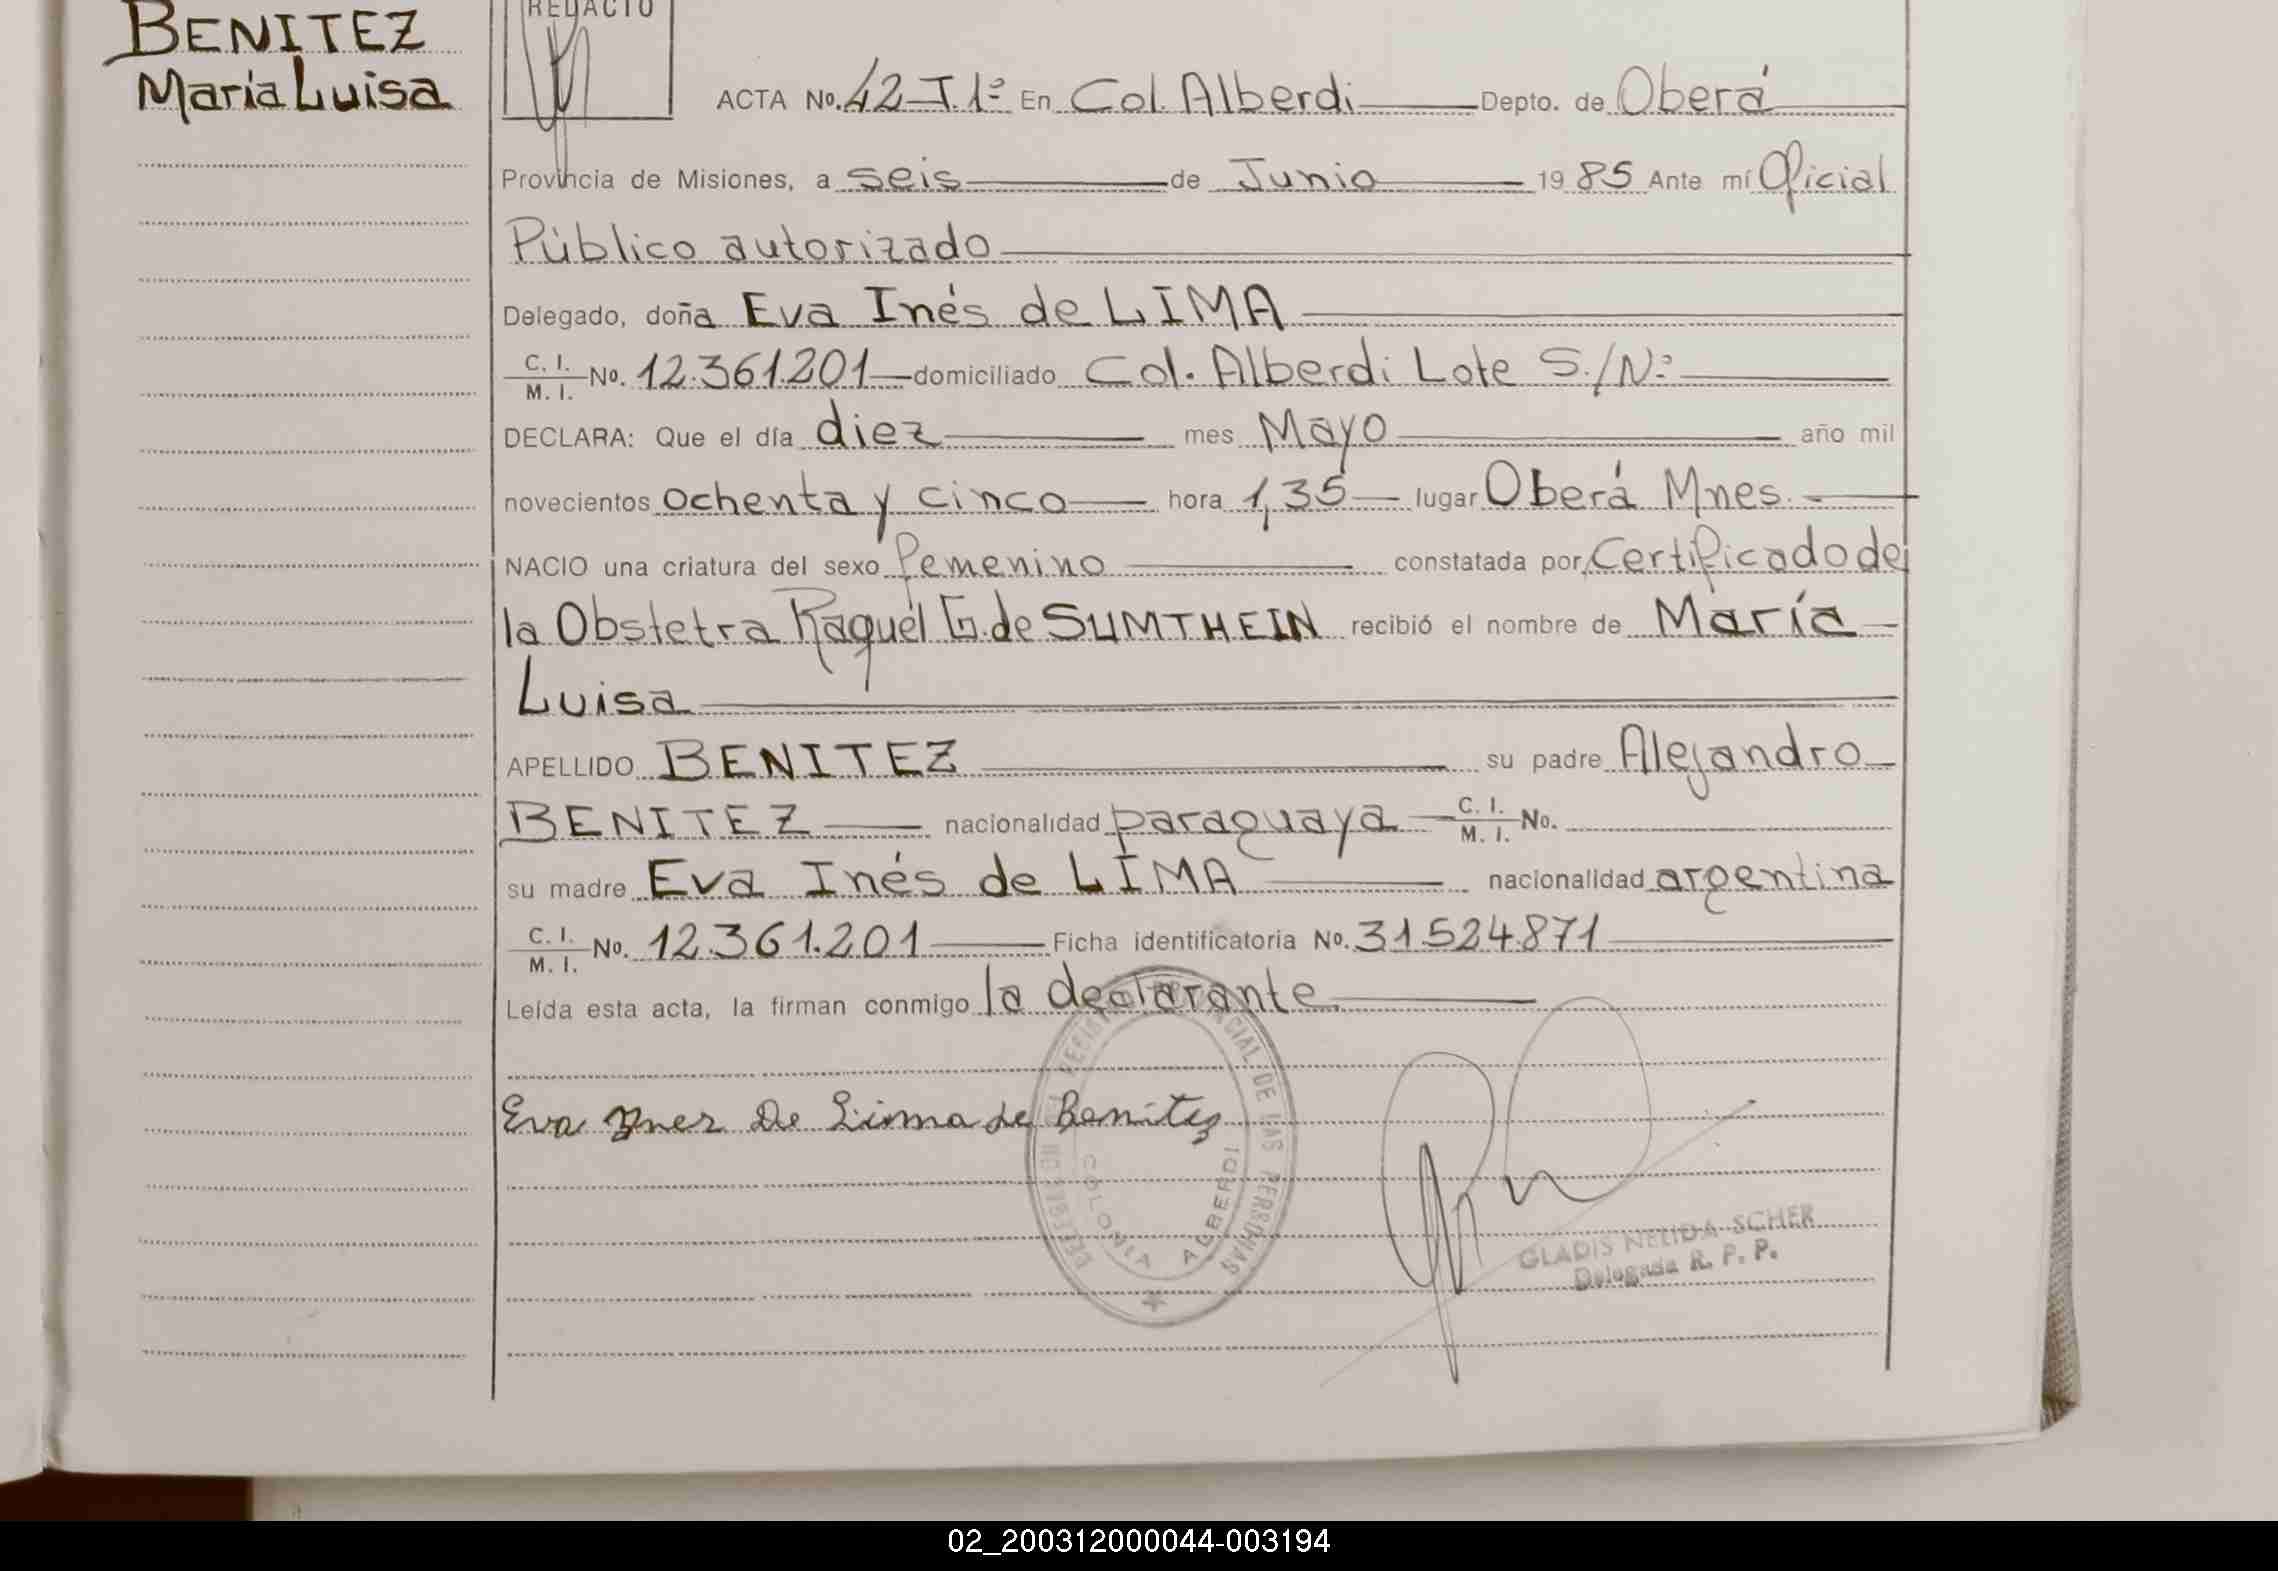 BENITEZ
María Luisa
REDACTO
ACTA No. 42-T.1º En Col. Alberdi Depto. de Oberá
Provincia de Misiones, a seis de Junio 1985 Ante mí Oficial
Público autorizado
Delegado, doña Eva Inés de LIMA
C. I. / M. I. No. 12.361.201 domiciliado Col. Alberdi Lote S./Nº
DECLARA: Que el día diez mes Mayo año mil
novecientos ochenta y cinco hora 1,35 lugar Oberá Mnes.
NACIO una criatura del sexo femenino constatada por Certificado de
la Obstetra Raquél G. de SUMTHEIN recibió el nombre de María
Luisa
APELLIDO BENITEZ su padre Alejandro
BENITEZ nacionalidad paraguaya C. I. / M. I. No.
su madre Eva Inés de LIMA nacionalidad argentina
C. I. / M. I. No. 12.361.201 Ficha identificatoria No. 31.524.871
Leída esta acta, la firman conmigo la declarante
Eva Ynes De Lima de Benitez
PROVINCIAL DE LAS PERSONAS
COLONIA ALBERDI
GLADIS NELIDA SCHER
Delegada R. P. P.
02_200312000044-003194